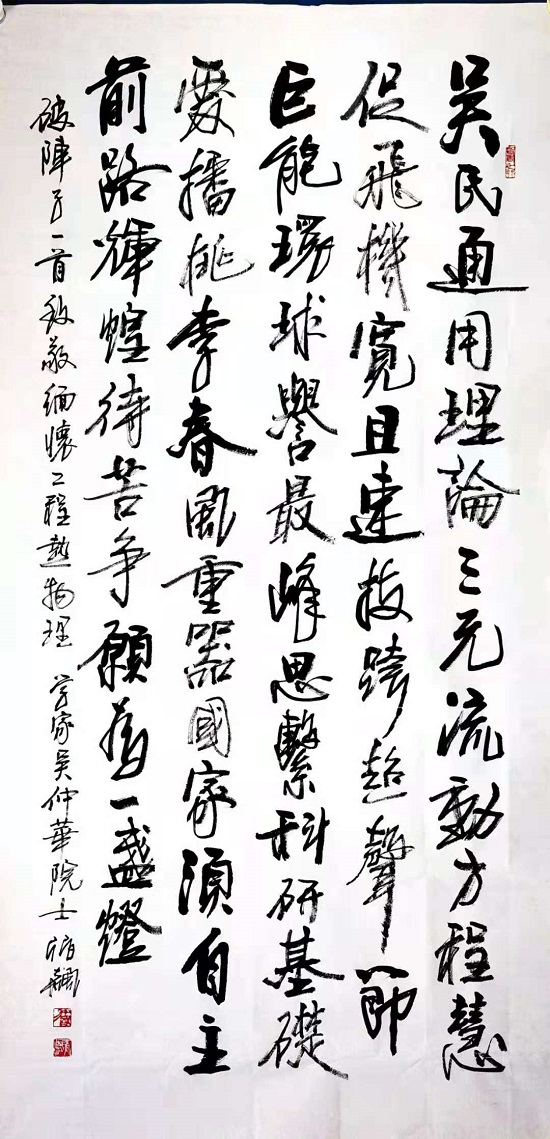 吴氏通用理論三元流動方程慧
促飛機寬且速跨超聲節
巨能環球譽最峰思繫科研基礎
愛播桃李春風重器國家須自主
前路輝煌待苦争願為一盏燈
破陣子一首致敬緬懷工程熱物理学家吴仲華院士